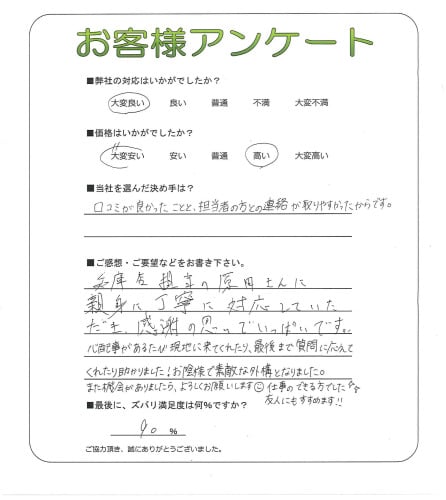 お客様アンケート
■弊社の対応はいかがでしたか？
大変良い 良い 普通 不満 大変不満
■価格はいかがでしたか？
大変安い 安い 普通 高い 大変高い
■当社を選んだ決め手は？
口コミが良かったことと、担当者の方との連絡が取りやすかったからです。
■ご感想・ご要望などをお書き下さい。
兵庫店 担当の原田さんに
親身に丁寧に対応していた
だき、感謝の思いでいっぱいです。
心配事があるたび現地に来てくれたり、最後まで質問に応えて
くれたり助かりました！お陰様で素敵な外構となりました。
また機会がありましたら、よろしくお願いします☺ 仕事のできる方でした☆☆
友人にもすすめます!!
■最後に、ズバリ満足度は何％ですか？
90 ％
ご協力頂き、誠にありがとうございました。